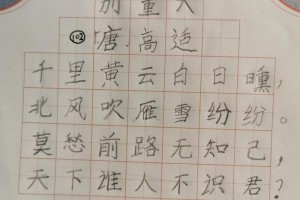 别董大
(102)「唐」高适
千里黄云白日曛，
北风吹雁雪纷纷。
莫愁前路无知己，
天下谁人不识君？